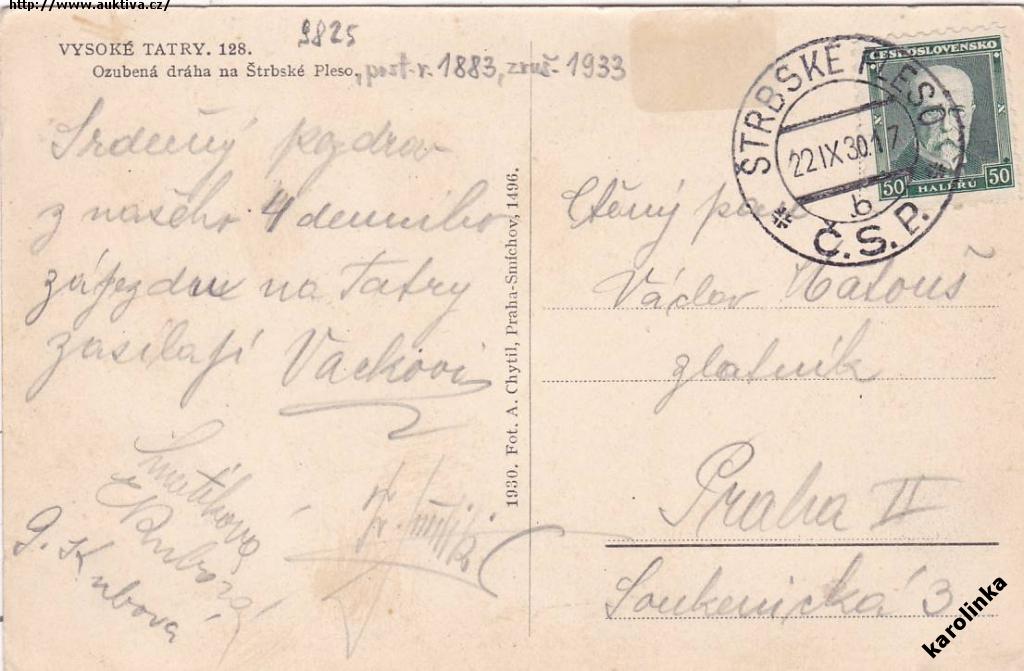 http://www.auktiva.cz/
9825
VYSOKÉ TATRY. 128.
Ozubená dráha na Štrbské Pleso, post. r. 1883, zruš. 1933
Srdečný pozdrav
z našeho 4 denního
zájezdu na Tatry
zasílají Vackovi
Smutíková
G. Kubová
1930. Fot. A. Chytil, Praha-Smíchov, 1496.
ŠTRBSKÉ PLESO
22.IX.30.17
b
Č.S.P.
ČESKOSLOVENSKO
50 HALÉŘŮ 50
Ctěný pan
Václav Matouš
zlatník
Praha II
Soukenická 3
karolinka